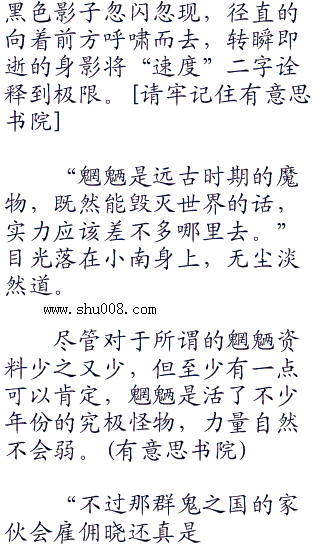 黑色影子忽闪忽现，径直的
向着前方呼啸而去，转瞬即
逝的身影将“速度”二字诠
释到极限。[请牢记住有意思
书院]
“魍魉是远古时期的魔
物，既然能毁灭世界的话，
实力应该差不多哪里去。”
目光落在小南身上，无尘淡
然道。
www.shu008.com
尽管对于所谓的魍魉资
料少之又少，但至少有一点
可以肯定，魍魉是活了不少
年份的究极怪物，力量自然
不会弱。(有意思书院)
“不过那群鬼之国的家
伙会雇佣晓还真是